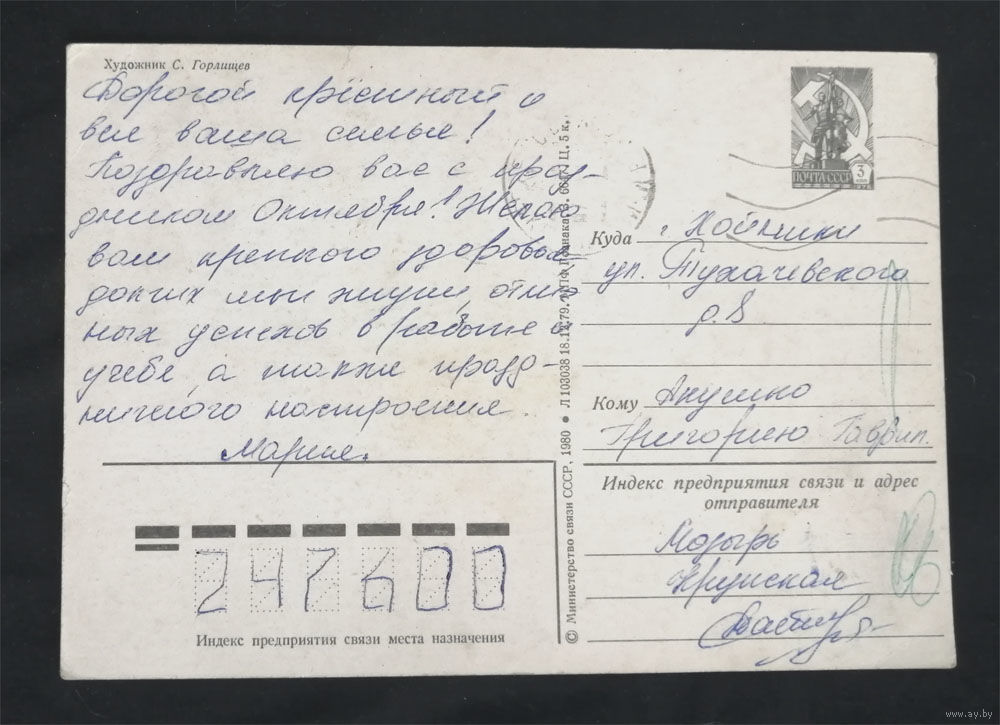 Художник С. Горлищев
Дорогой крёсный и
вся ваша семья!
Поздравляю вас с праз-
дником Октября! Желаю
вам крепкого здоровья
долгих лет жизни, отлич
ных успехов в работе и
учебе, а также празд-
ничного настроения.
Мария.
ПОЧТА СССР
3
коп
1978
Куда г. Хойники
ул. Тухачевского
д. 8
Кому
Григорию Гаврил.
Индекс предприятия связи и адрес
отправителя
Мозырь
Крупская
247600
Индекс предприятия связи места назначения
© Министерство связи СССР, 1980 ● Л103038 18.12.79. Ц. 5 к.
www.ay.by